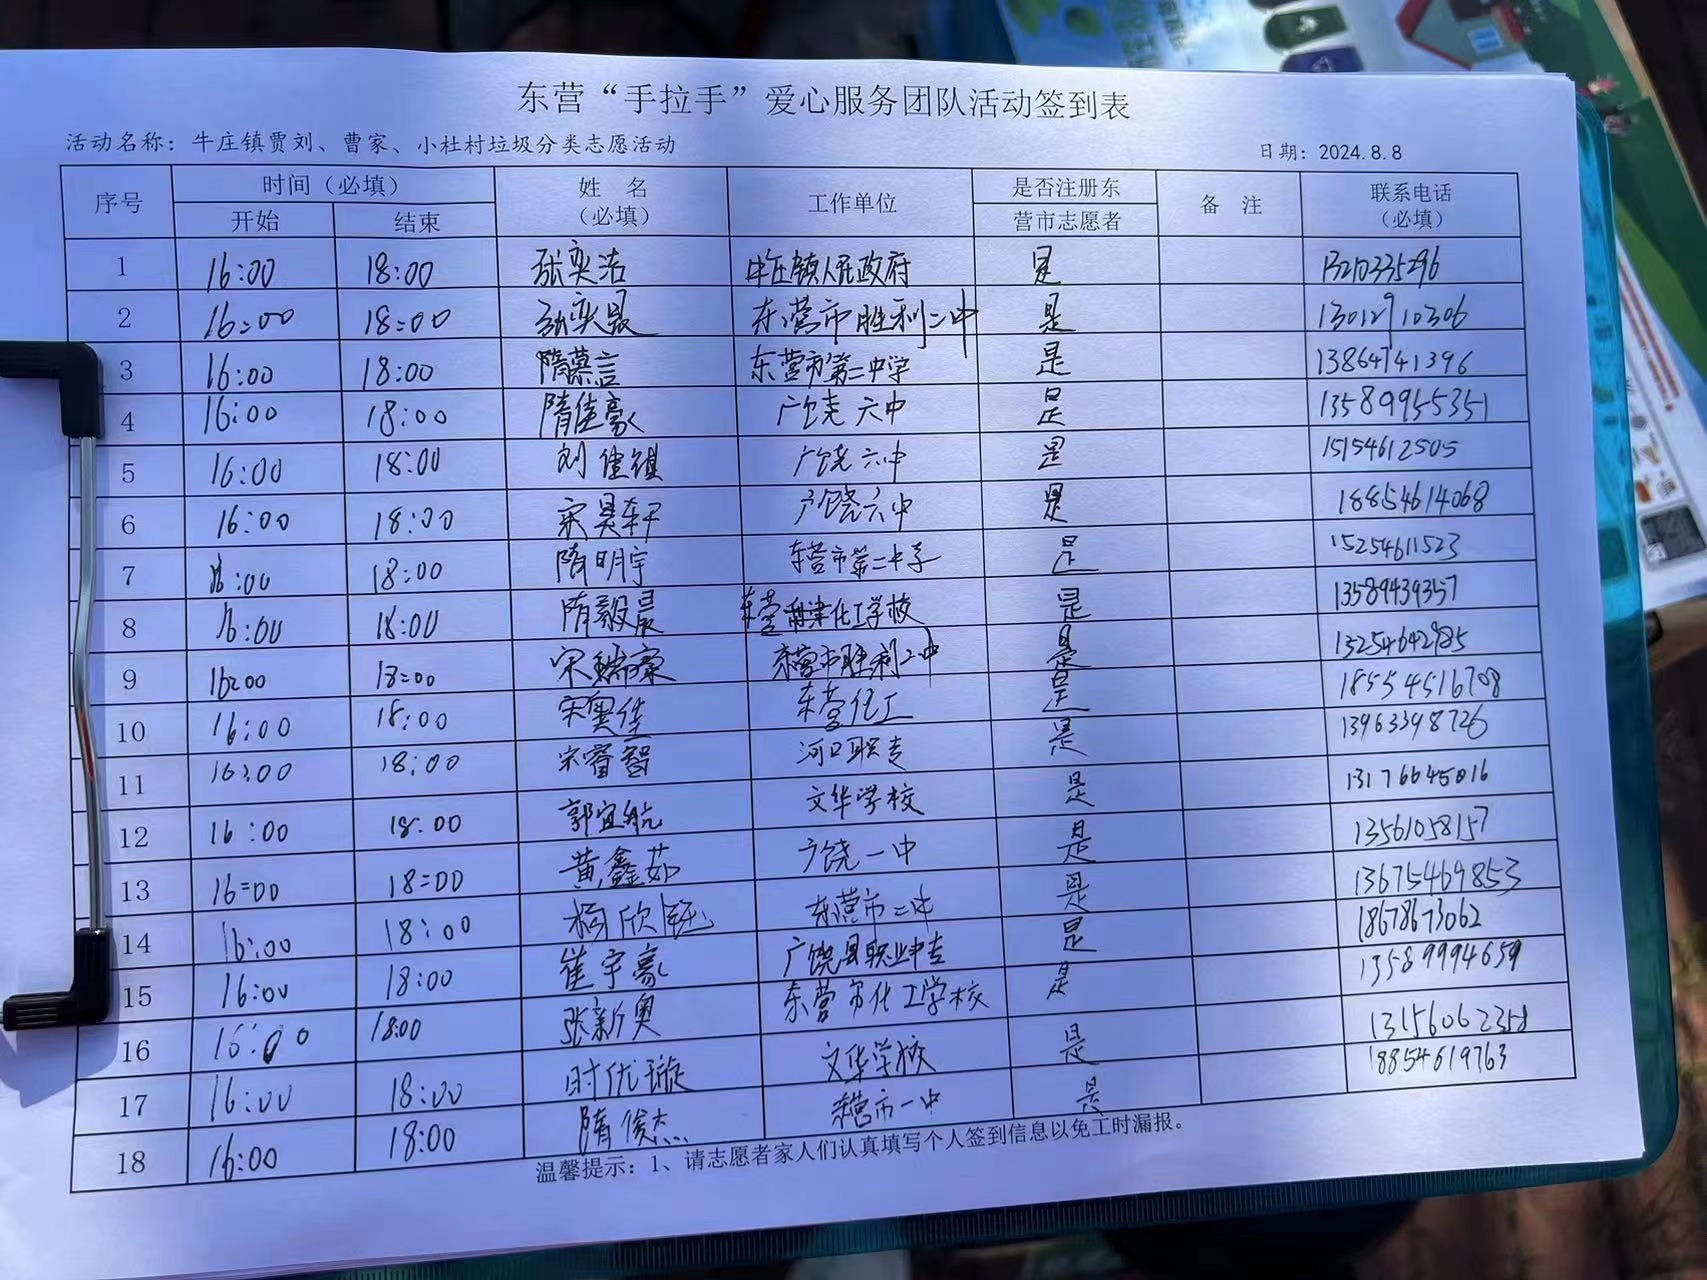 东营“手拉手”爱心服务团队活动签到表
活动名称：牛庄镇贾刘、曹家、小杜村垃圾分类志愿活动 日期：2024.8.8
序号 时间（必填） 姓 名（必填） 工作单位 是否注册东营市志愿者 备 注 联系电话（必填）
开始 结束
1 16:00 18:00 张奕洁 牛庄镇人民政府 是 13210335296
2 16:00 18:00 张奕晨 东营市胜利二中 是 13012910306
3 16:00 18:00 隋慕言 东营市第二中学 是 13864741396
4 16:00 18:00 隋佳豪 广饶六中 是 13589955351
5 16:00 18:00 刘佳镇 广饶六中 是 15154612505
6 16:00 18:00 宋昊轩 广饶六中 是 18854614068
7 16:00 18:00 隋明宇 东营市第二中学 是 15254611523
8 16:00 18:00 隋毅晨 东营利津化工学校 是 13589439357
9 16:00 18:00 宋 东营市胜利二中 是 13254642985
10 16:00 18:00 宋奥佳 东营化工 是 18554516708
11 16:00 18:00 宋睿智 河口职专 是 13963398726
12 16:00 18:00 郭宜航 文华学校 是 13176645016
13 16:00 18:00 黄鑫茹 广饶一中 是 13561058157
14 16:00 18:00 杨欣钰 东营市二中 是 13675469853
15 16:00 18:00 崔宇豪 广饶县职业中专 是 18678673062
16 16:00 18:00 张新奥 东营市化工学校 是 13589994659
17 16:00 18:00 时优璇 文华学校 是 13156062358
18 16:00 18:00 隋俊杰 东营市一中 是 18854619763
温馨提示：1、请志愿者家人们认真填写个人签到信息以免工时漏报。